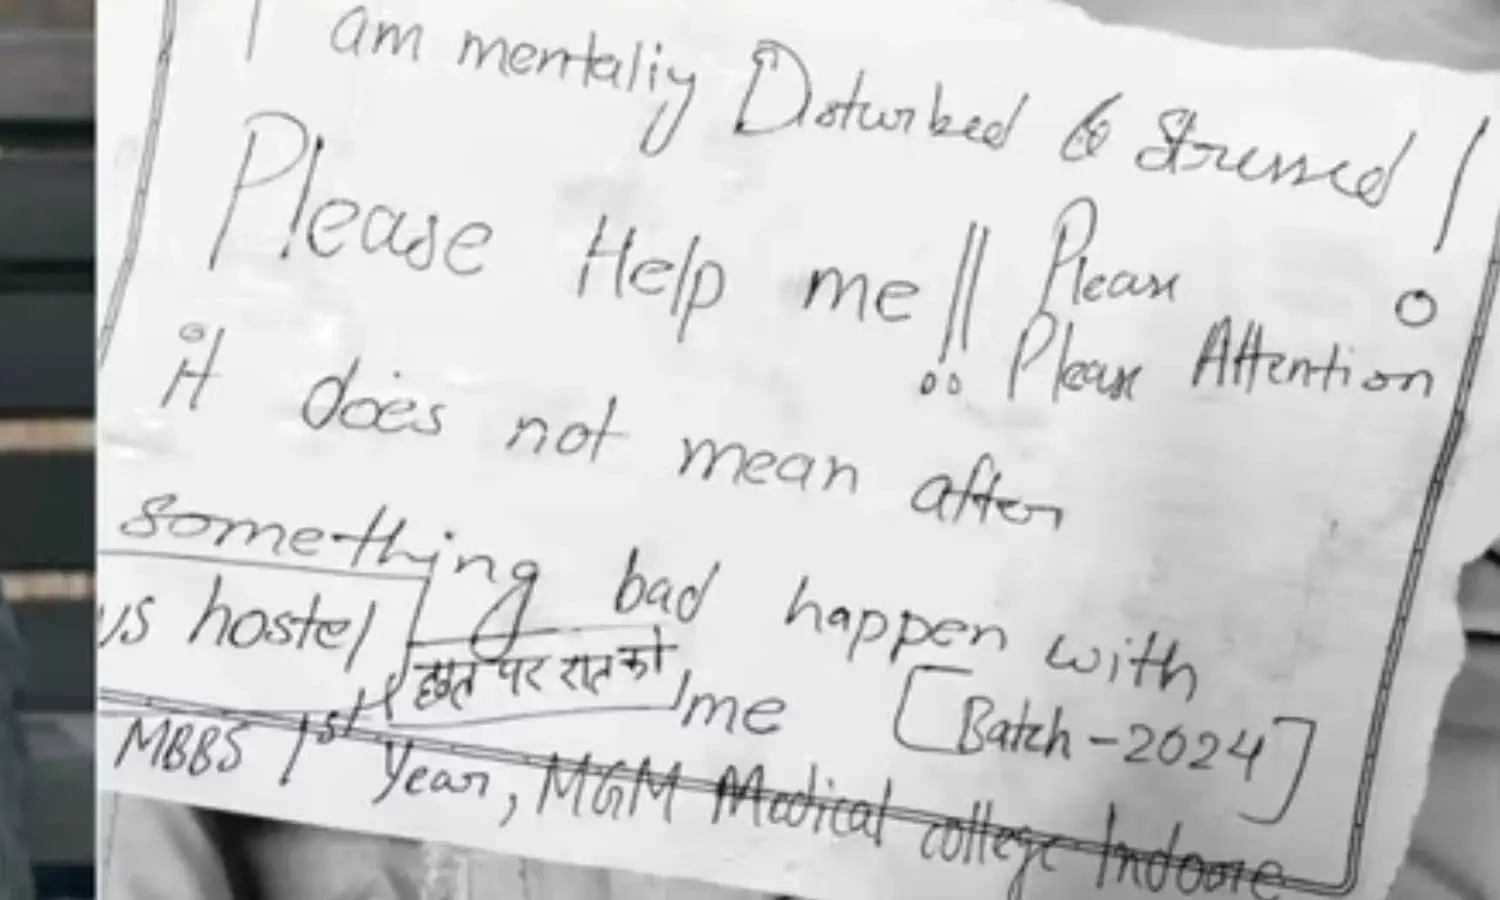 I am mentaliy Disturbed & Stressed !
Please Help me !! Please
Please Attention
it does not mean after
something bad happen with
us hostel छत पर रात को me [Batch-2024]
MBBS 1st Year, MGM Medical college Indore